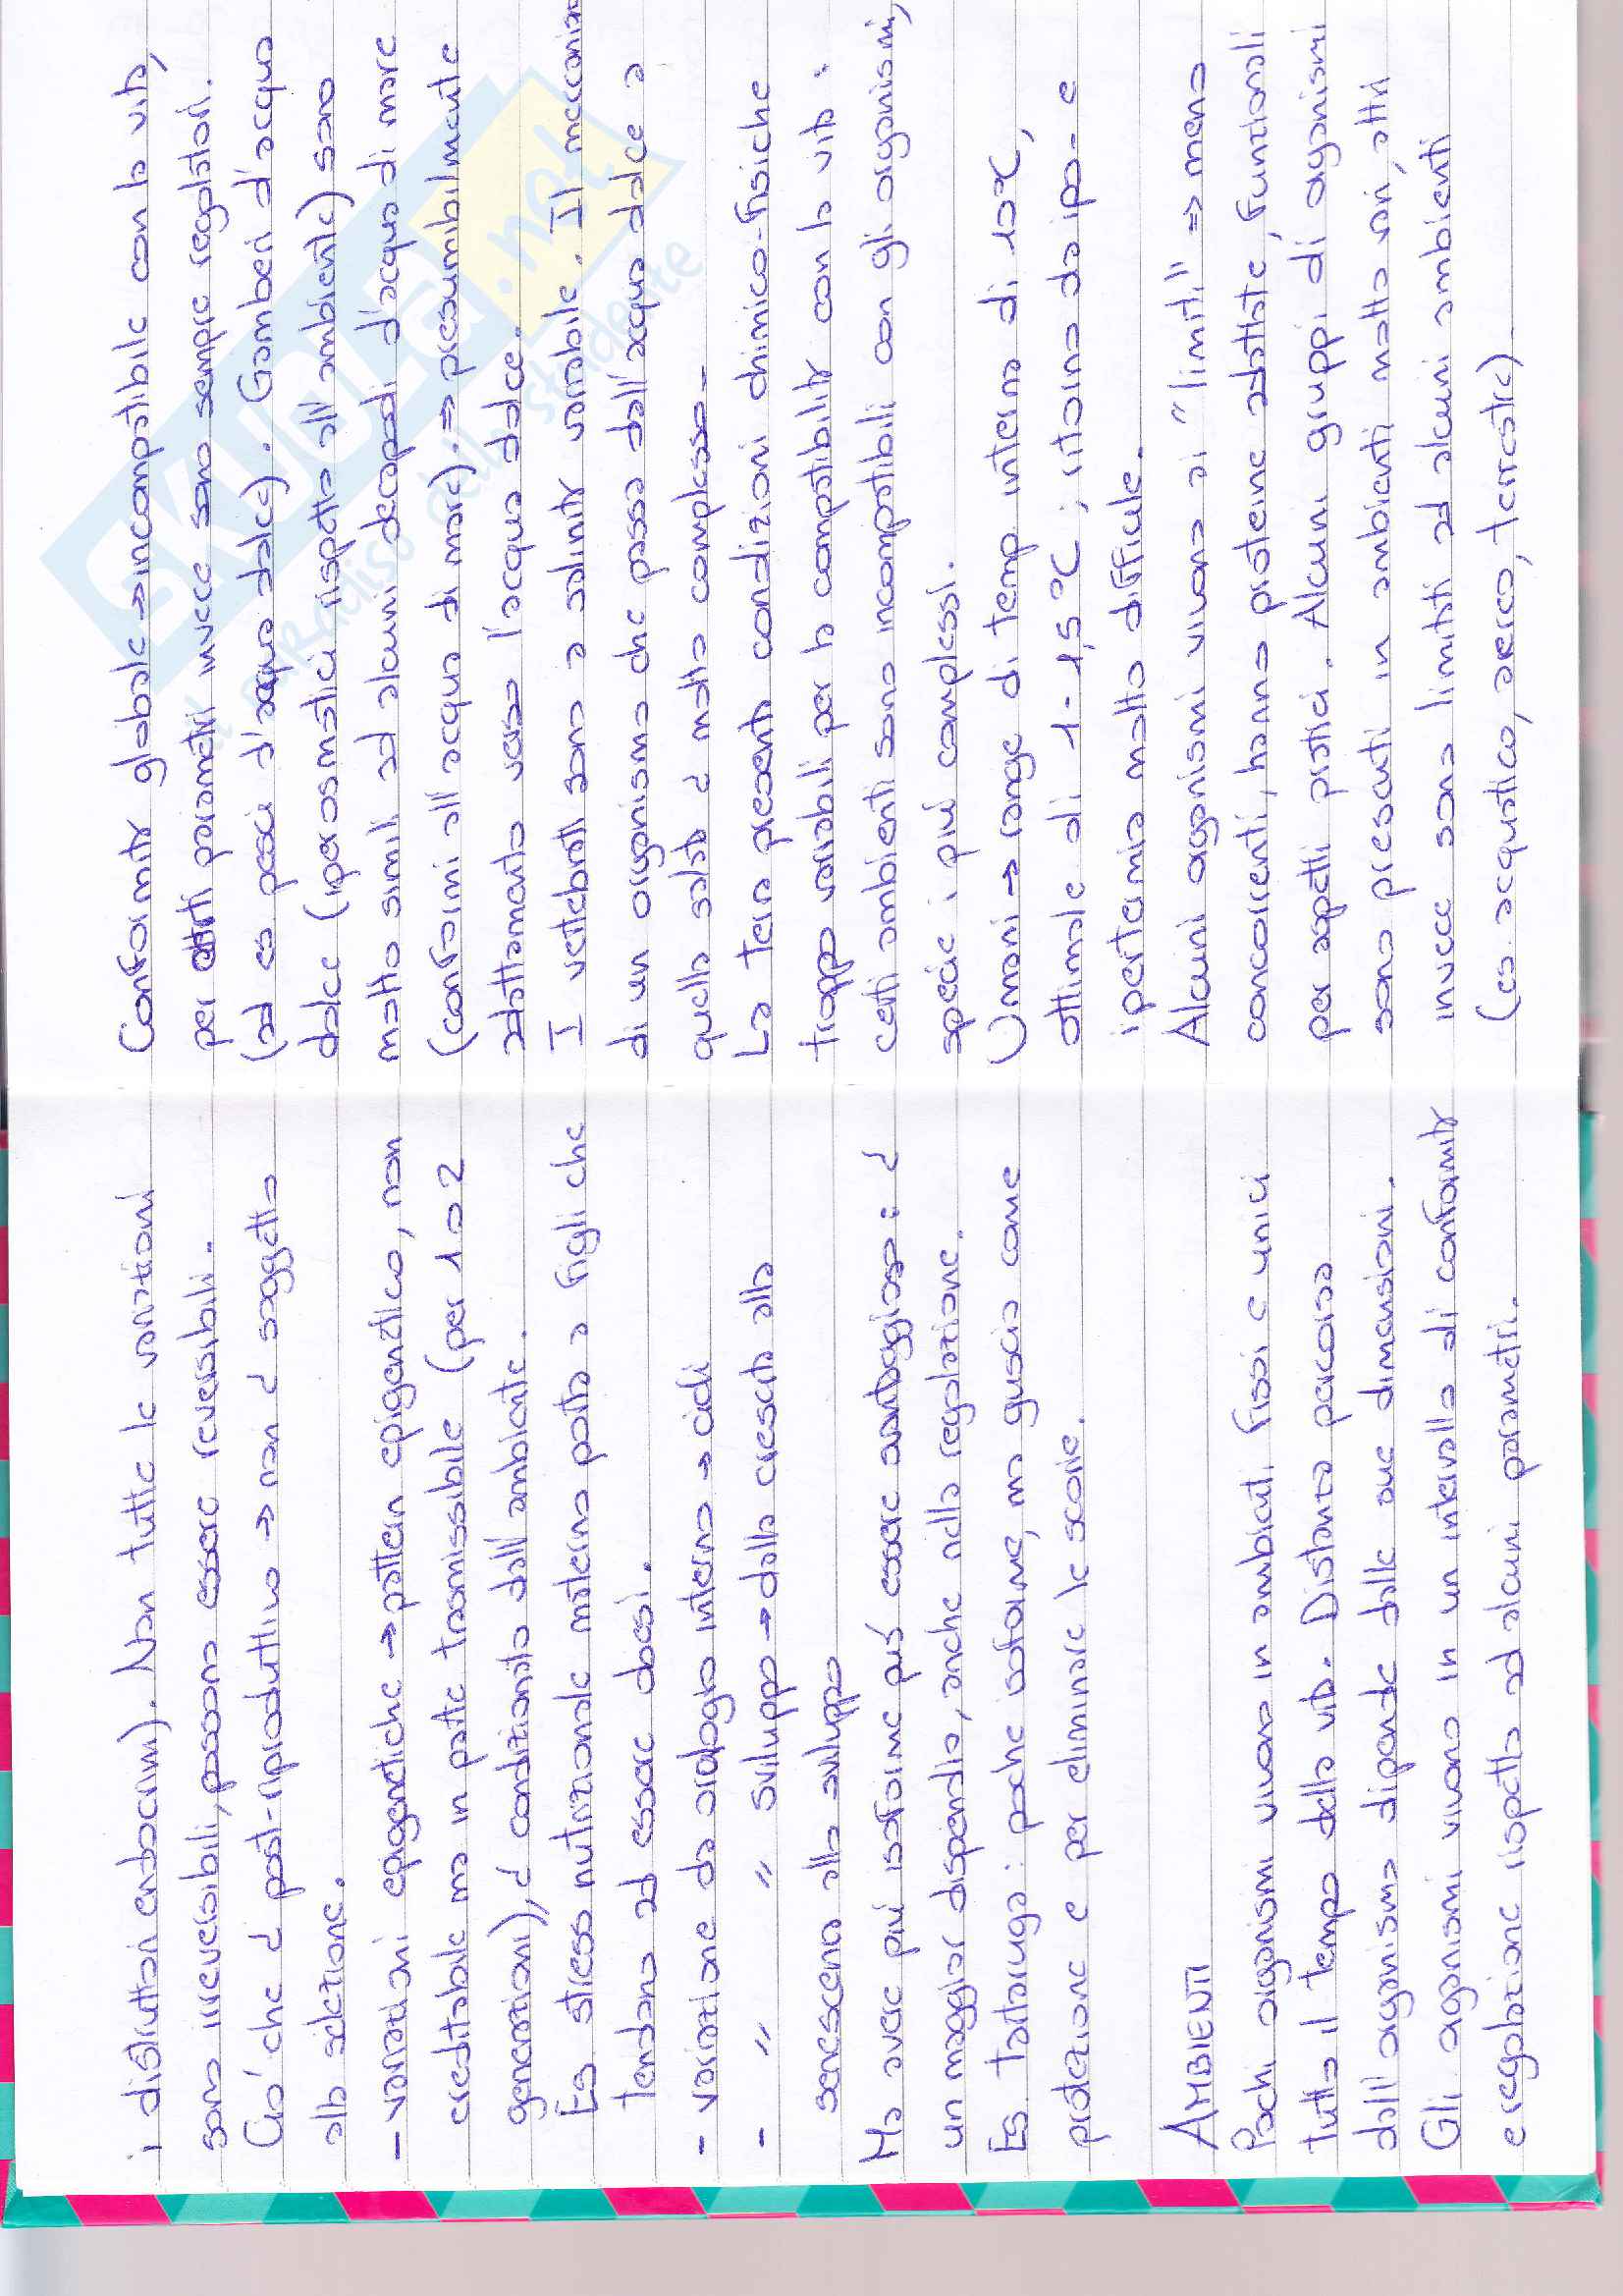 i distruttori endocrini). Non tutte le variazioni
sono irreversibili, possono essere reversibili.
Ciò che è post-riproduttivo → non è soggetto
alla selezione.
- variazioni epigenetiche → pattern epigenetico, non
ereditabile ma in parte trasmissibile (per 1 o 2
generazioni), è condizionato dall'ambiente.
Es stress nutrizionale materno porta a figli che
tendono ad essere obesi.
- variazione da orologio interno → cicli
- " " sviluppo → dalla crescita alla
senescenza allo sviluppo
Ma avere più isoforme può essere svantaggioso: è
un maggior dispendio, anche nella regolazione.
Es. tartaruga: poche isoforme, ma guscio come
protezione e per eliminare le scorie.
AMBIENTI
Pochi organismi vivono in ambienti fissi e unici
tutto il tempo della vita. Distanza percorsa
dall'organismo dipende dalle sue dimensioni.
Gli organismi vivono in un intervallo di conformità
e regolazione rispetto ad alcuni parametri.
Conformità globale → incompatibile con la vita,
per altri parametri invece sono sempre regolatori.
(ad es pesci d'acqua dolce). Gamberi d'acqua
dolce (iperosmotici rispetto all'ambiente) sono
molto simili ad alcuni decapodi d'acqua di mare
(conformi all'acqua di mare). ⇒ presumibilmente
adattamento verso l'acqua dolce.
I vertebrati sono a salinità variabile. Il meccanismo
di un organismo che passa dall'acqua dolce a
quella salata è molto complesso.
La Terra presenta condizioni chimico-fisiche
troppo variabili per la compatibilità con la vita:
certi ambienti sono incompatibili con gli organismi,
specie i più complessi.
Umani → range di temp interna di 10°C,
ottimale di 1-1,5°C; ritorno da ipo- e
ipertermia molto difficile.
Alcuni organismi vivono ai "limiti" ⇒ meno
concorrenti, hanno proteine adattate, funzionali
per aspetti pratici. Alcuni gruppi di organismi
sono presenti in ambienti molto vari, altri
invece sono limitati ad alcuni ambienti
(es. acquatico, aereo, terrestre)
SKUOLA.net
il paradiso dello studente